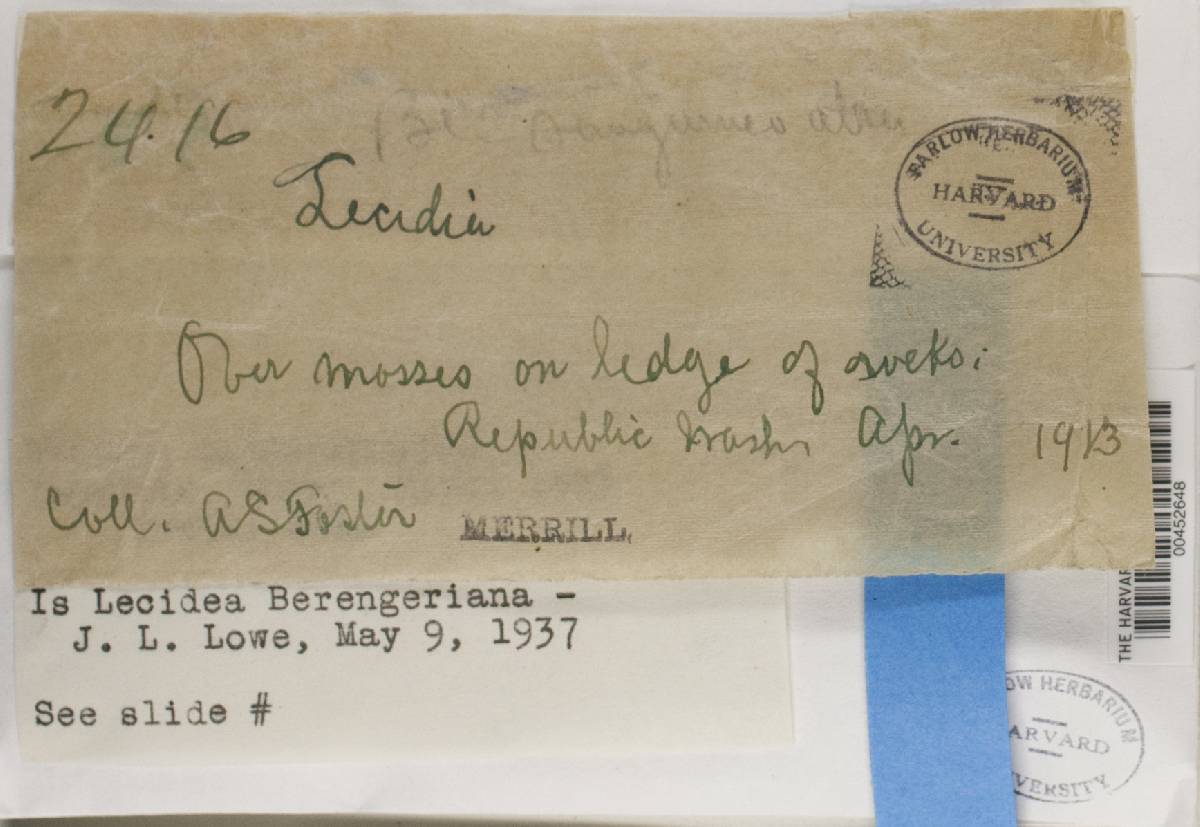 2416
Bi. sanguineo atra
FARLOW HERBARIUM
HARVARD
UNIVERSITY
Lecidia
Over mosses on ledge of rocks;
Republic Wash, Apr. 1913
Coll. A S Foster MERRILL
Is Lecidea Berengeriana -
J. L. Lowe, May 9, 1937
See slide #
THE HARVAR
00452648
OW HERBARIUM
ARVARD
VERSITY